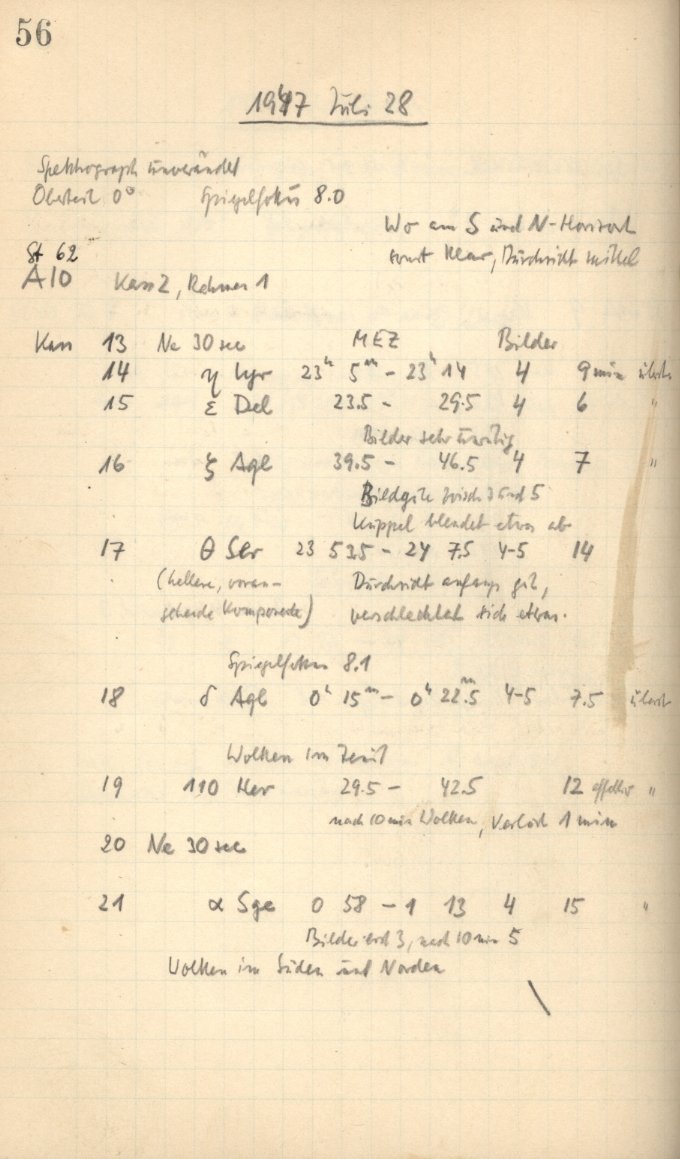 56
1947 Juli 28
Spektrograph unverändert
Oberteil 0° Spiegelfokus 8.0
Wo am S und N-Horizont
sonst klar, Durchsicht mittel
St 62
A10 Kass 2, Rahmen 1
Kass 13 Ne 30 sec MEZ Bilder
14 η Lyr 23h 5m – 23h 14 4 9 min überb.
15 ε Del 23.5 – 29.5 4 6 "
Bilder sehr unruhig
16 ζ Aql 39.5 – 46.5 4 7 "
Bildgüte zwisch 3 und 5
Kuppel blendet etwas ab
17 θ Ser 23 53.5 – 24 7.5 4-5 14
(hellere, voran-
gehende Komponente)
Durchsicht anfangs gut,
verschlechtert sich etwas.
Spiegelfokus 8.1
18 δ Aql 0h 15m – 0h 22m.5 4-5 7.5
Wolken im Zenit
19 110 Her 29.5 – 42.5 12 effektiv "
nach 10 min Wolken, Verlust 1 min
20 Ne 30 sec
21 α Sge 0 58 – 1 13 4 15 "
Bilder erst 3, nach 10 min 5
Wolken im Süden und Norden